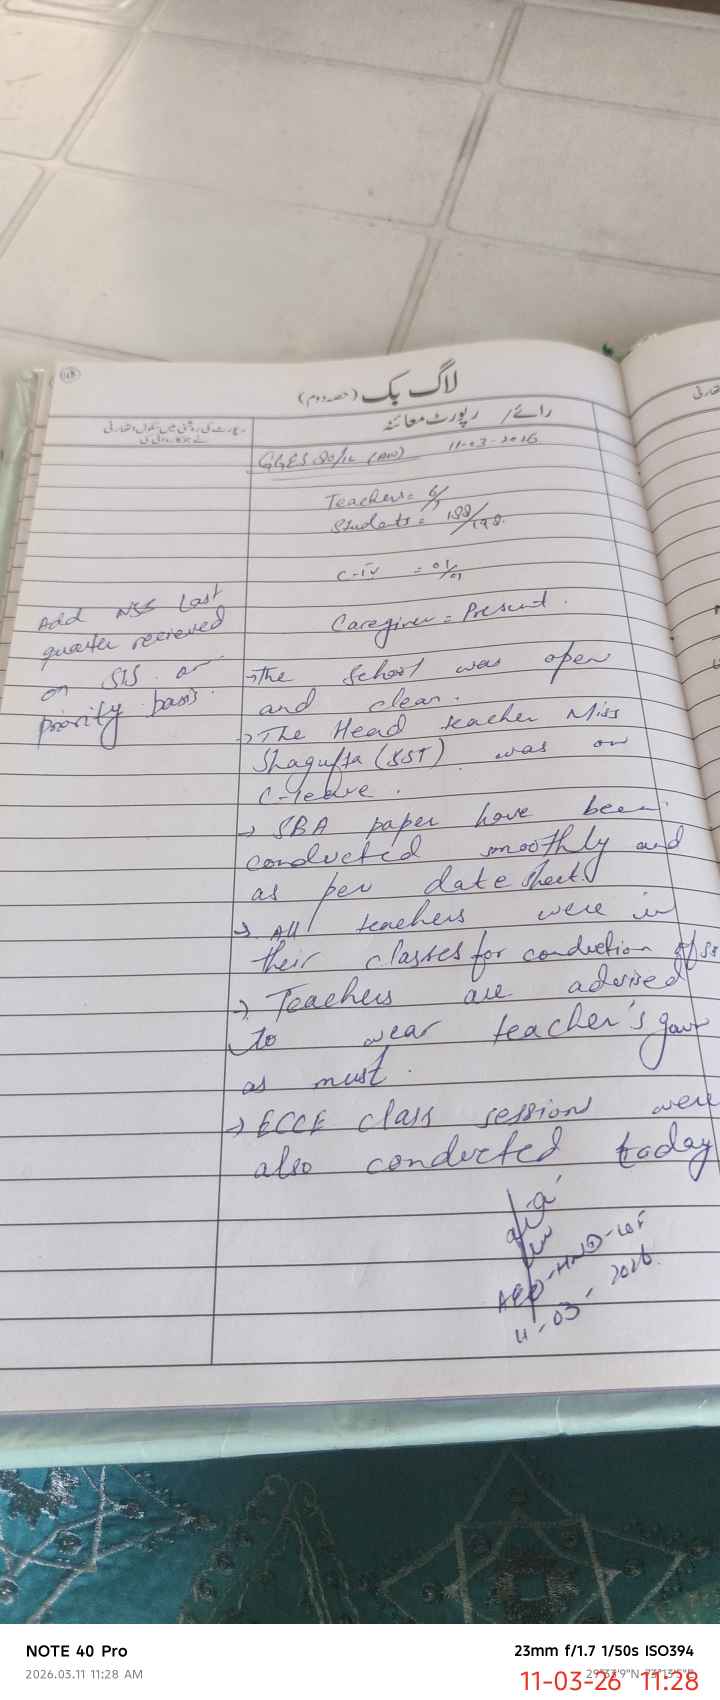 168
لاگ بک (حصہ دوم)
رائے / رپورٹ معائنہ
رپورٹ کی روشنی میں سکول اتھارٹی
نے جو کارروائی کی
11-03-2026
Teachers = 6/7
Students = 188/198.
C-IV = 01/01
Caregiver = Present.
Add NSB Last
quarter recieved
on SIS on
priority basis.
→ The school was open
and clean.
→ The Head teacher Miss
Shagufta (SST) was on
C-leave.
→ SBA paper have been
conducted smoothly and
as per date sheet.
→ All teachers were in
their classes for conduction of
→ Teachers are advised
to wear teacher's gown
as must.
→ ECCE class sessions were
also conducted today
11-03-2026.
NOTE 40 Pro
23mm f/1.7 1/50s ISO394
2026.03.11 11:28 AM
11-03-26 11:28